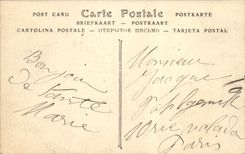 POST CARD Carte Postale POSTKARTE
BRIEFKAART — POSTKAART
CARTOLINA POSTALE — ОТКРЫТОЕ ПИСЬМО — TARJETA POSTAL
Bonjour
de
Marie
Monsieur
Jacques
rue
Paris